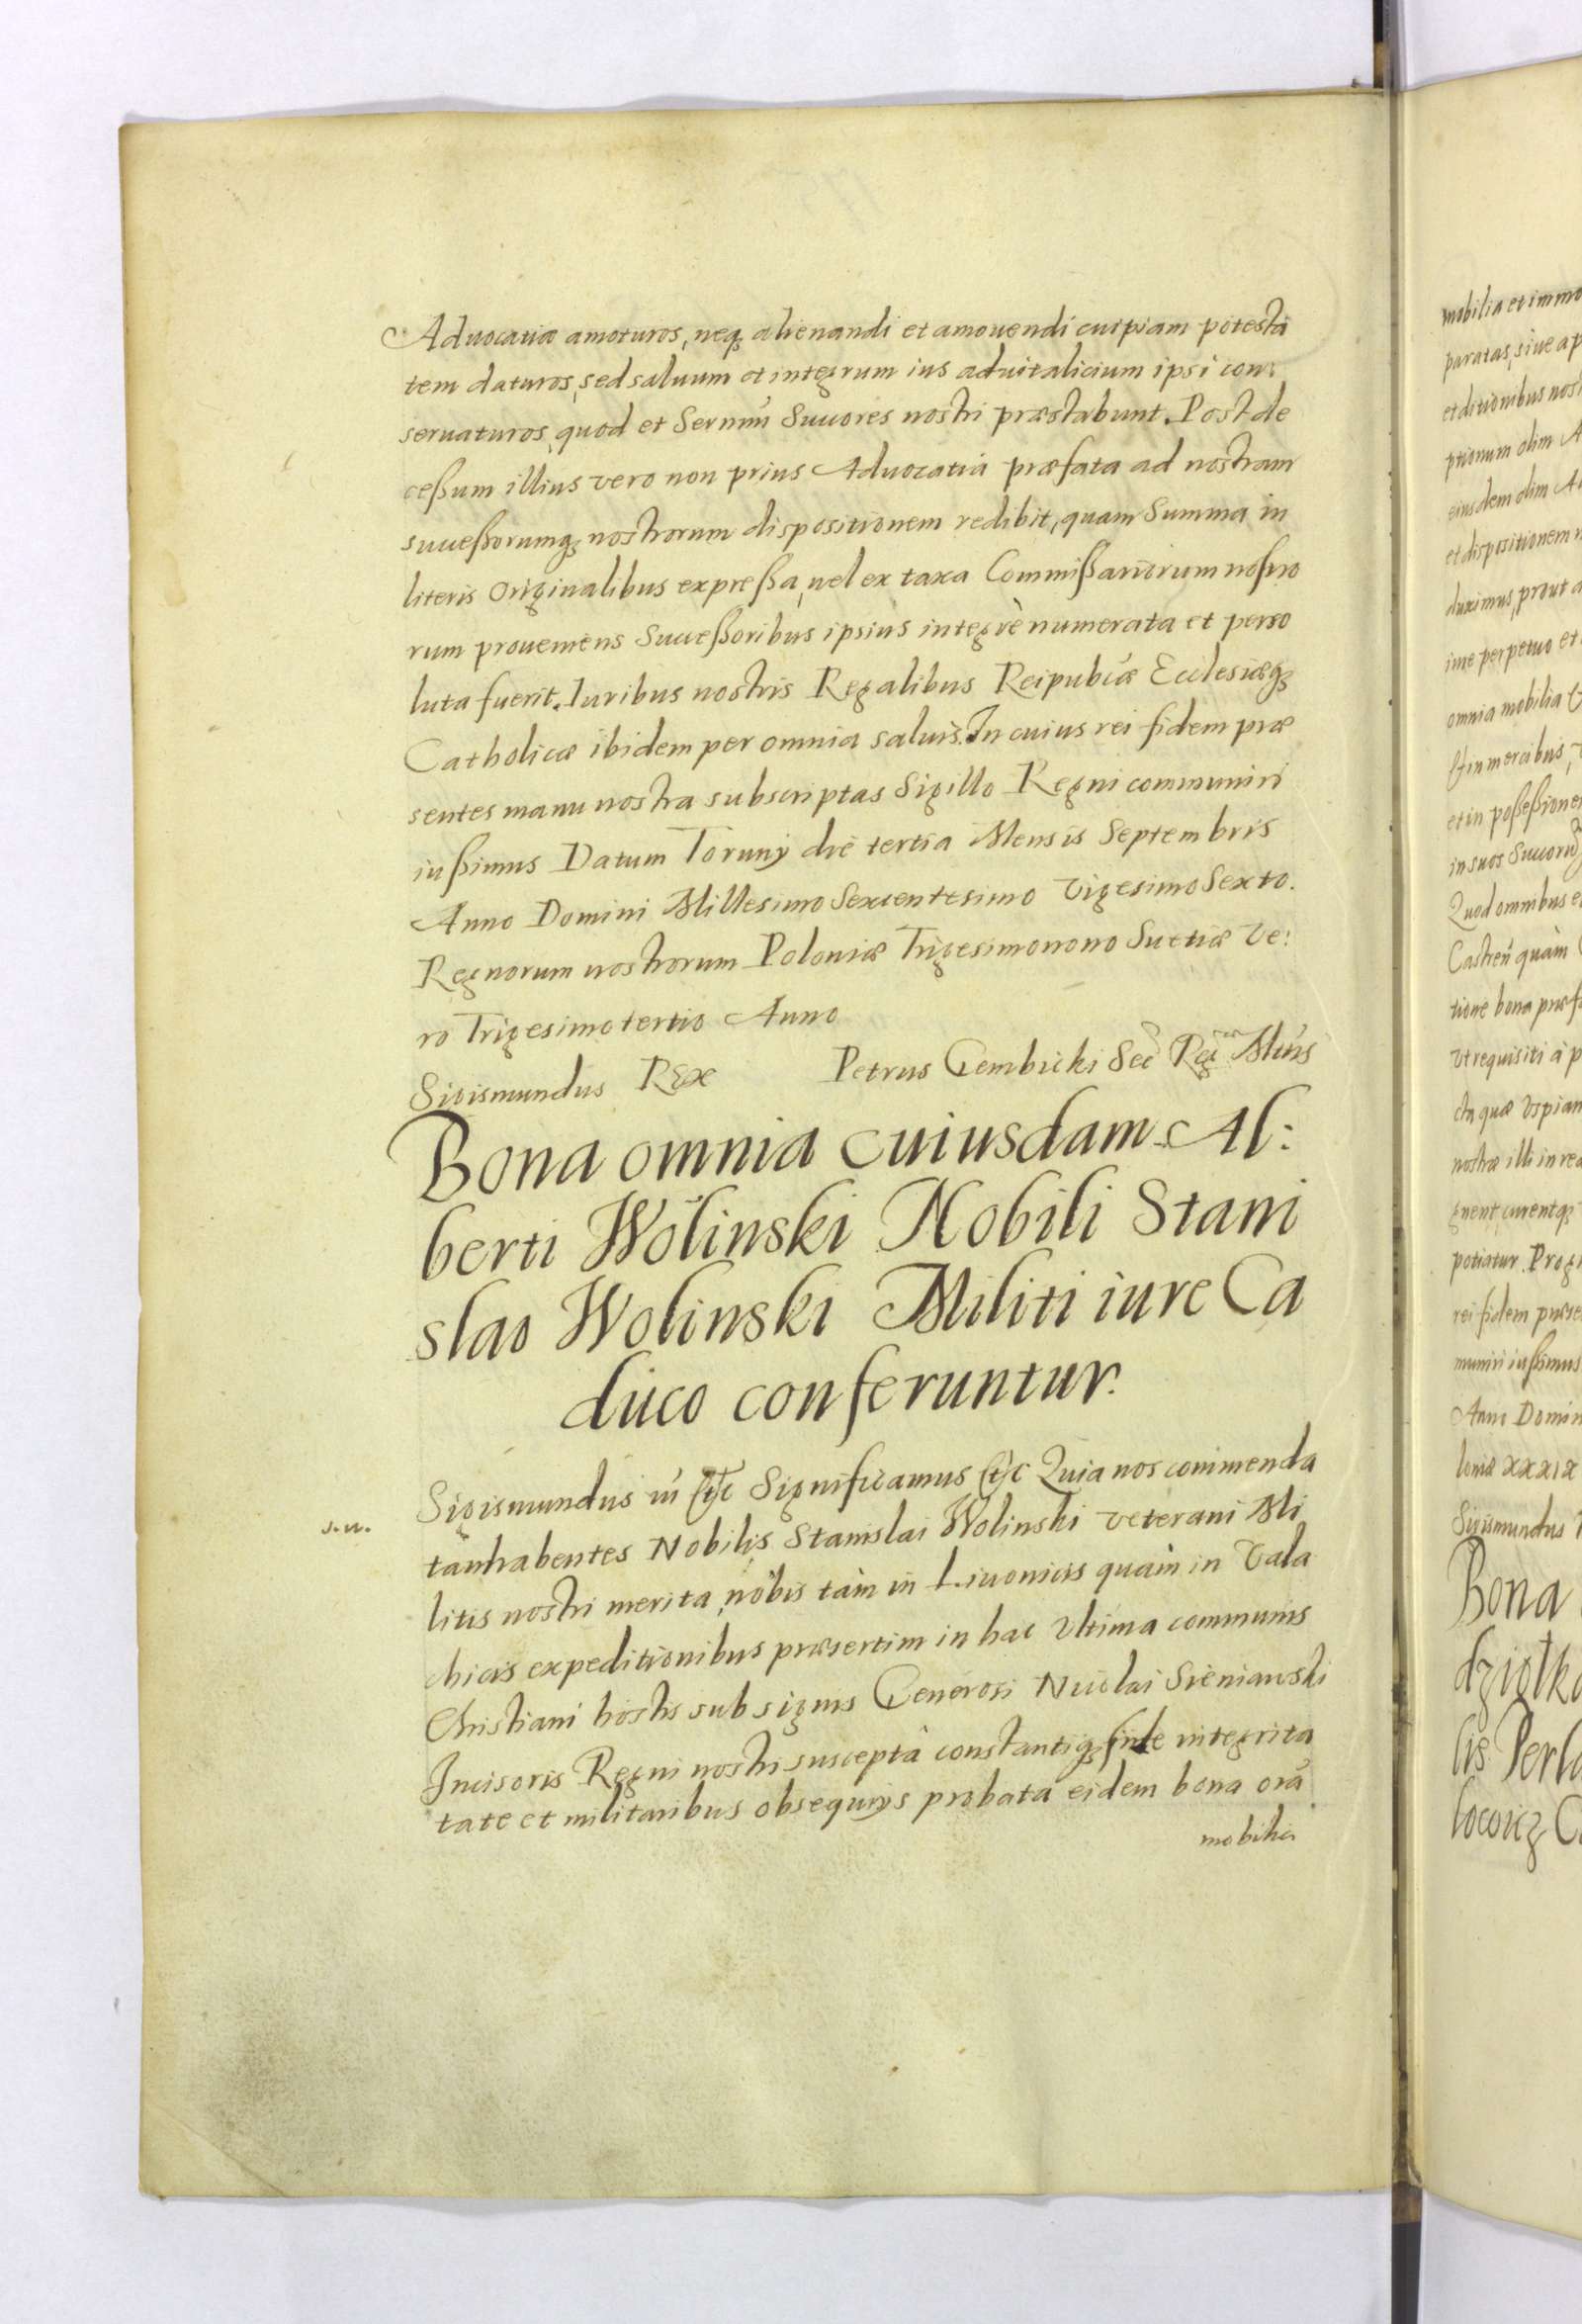 Aduocatiæ amoturos, neq₃ alienandi et amouendi cuipiam potesta
tem daturos, sed saluum et integrum ius aduitalicium ipsi con:
seruaturos, quod et Sernmi Suuores nostri præstabunt. Post de
ceßum illius vero non prius Aduocatia præfata ad nostram
suueßorumq₃ nostrorum dispositionem redibit, quam Summa in
literis Originalibus expreßa, uel ex taxa Commißariorum nostro
rum proueniens Suueßoribus ipsius integrè numerata et perso
luta fuerit. Iuribus nostris Regalibus Reipubcæ Ecclesiæq₃
Catholicæ ibidem per omnia saluis. In cuius rei fidem præ
sentes manu nostra subscriptas Sigillo Regni communiri
iußimus Datum Toruny die tertia Mensis Septembris
Anno Domini Millesimo Sexcentesimo Vigesimo Sexto.
Regnorum nostrorum Poloniæ Trigesimonono Suetiæ Ve:
ro Trigesimo tertio Anno
Sigismundus Rex Petrus Gembicki Sec Rg
Bona omnia cuiusdam Al:
berti Wolinski Nobili Stani
slao Wolinski Militi iure Ca
duco conferuntur.
Sigismundus etc Significamus etc Quia nos commenda
tanhabentes Nobilis Stanislai Wolinski veterani Mi
litis nostri merita, nobis tàm in Liuonicis quàm in Vala
chicis expeditionibus præsertim in hac Vltima communis
Christiani hostis sub signis Generosi Nicolai Sieniawski
Incisoris Regni nostri suscepta constantiq₃ fide integrita
tate et militaribus obsequiys probata eidem bona oia
mobilia
s.n.
mobilia et immo
paratas, siue ap
et ditionibus nost
ptionum olim A
eiusdem olim A
et dispositionem n
duximus, prout a
iure perpetuo et
omnia mobilia
in mercibus,
et in poßeßione
in suos Succoru
Quod omnibus e
Castren quàm
tione bona præf
Vt requisiti à p
quæ Vspiam
nostræ illi in rea
gnent curentq₃
potiatur. Pro
rei fidem præse
muniri iußimus
Anno Domin
loniæ xxxix
Sigismundus
Bona
dziołka
lis Perla